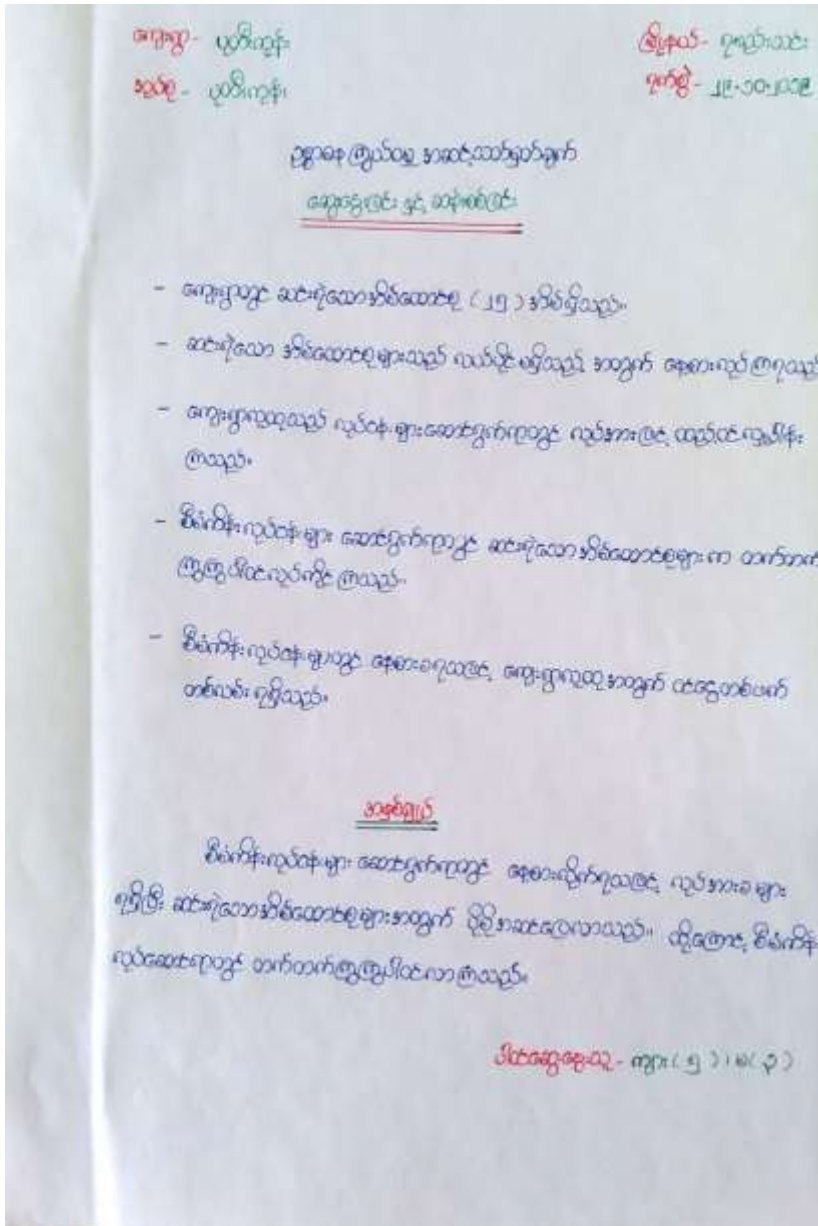 ကျေးရွာ - ပုတီးကုန်း မြို့နယ် - ရမည်းသင်း
အုပ်စု - ပုတီးကုန်း ရက်စွဲ - ၂၉-၁၀-၂၀၁၉
ဥစ္စာဓန ကြွယ်ဝမှု အဆင့်သတ်မှတ်ချက်
ဆွေးနွေးခြင်း နှင့် ဆန်းစစ်ခြင်း
- ကျေးရွာတွင် ဆင်းရဲသောအိမ်ထောင်စု (၂၅) အိမ်ရှိသည်။
- ဆင်းရဲသော အိမ်ထောင်စုများသည် လယ်ပိုင်မရှိသည့် အတွက် နေ့စားလုပ်ကြရသည်
- ကျေးရွာလူထုသည် လုပ်ငန်းများဆောင်ရွက်ရာတွင် လုပ်အားဖြင့် ထည့်ဝင်လှူဒါန်း
ကြသည်။
- စီမံကိန်းလုပ်ငန်းများ ဆောင်ရွက်ရာတွင် ဆင်းရဲသောအိမ်ထောင်စုများက တက်တက်
ကြွကြွပါဝင်လုပ်ကိုင်ကြသည်။
- စီမံကိန်းလုပ်ငန်းများတွင် နေ့စားခရသဖြင့် ကျေးရွာလူထုအတွက် ဝင်ငွေတစ်ဖက်
တစ်လမ်းရရှိသည်။
အနှစ်ချုပ်
စီမံကိန်းလုပ်ငန်းများ ဆောင်ရွက်ရာတွင် နေ့စားလိုက်ရသဖြင့် လုပ်အားခများ
ရရှိပြီး ဆင်းရဲသောအိမ်ထောင်စုများအတွက် ပိုမိုအဆင်ပြေလာသည်။ ထို့ကြောင့် စီမံကိန်း
လုပ်ဆောင်ရာတွင် တက်တက်ကြွကြွပါဝင်လာကြသည်။
ပါဝင်ဆွေးနွေးသူ - ကျား (၅) ၊ မ (၃)